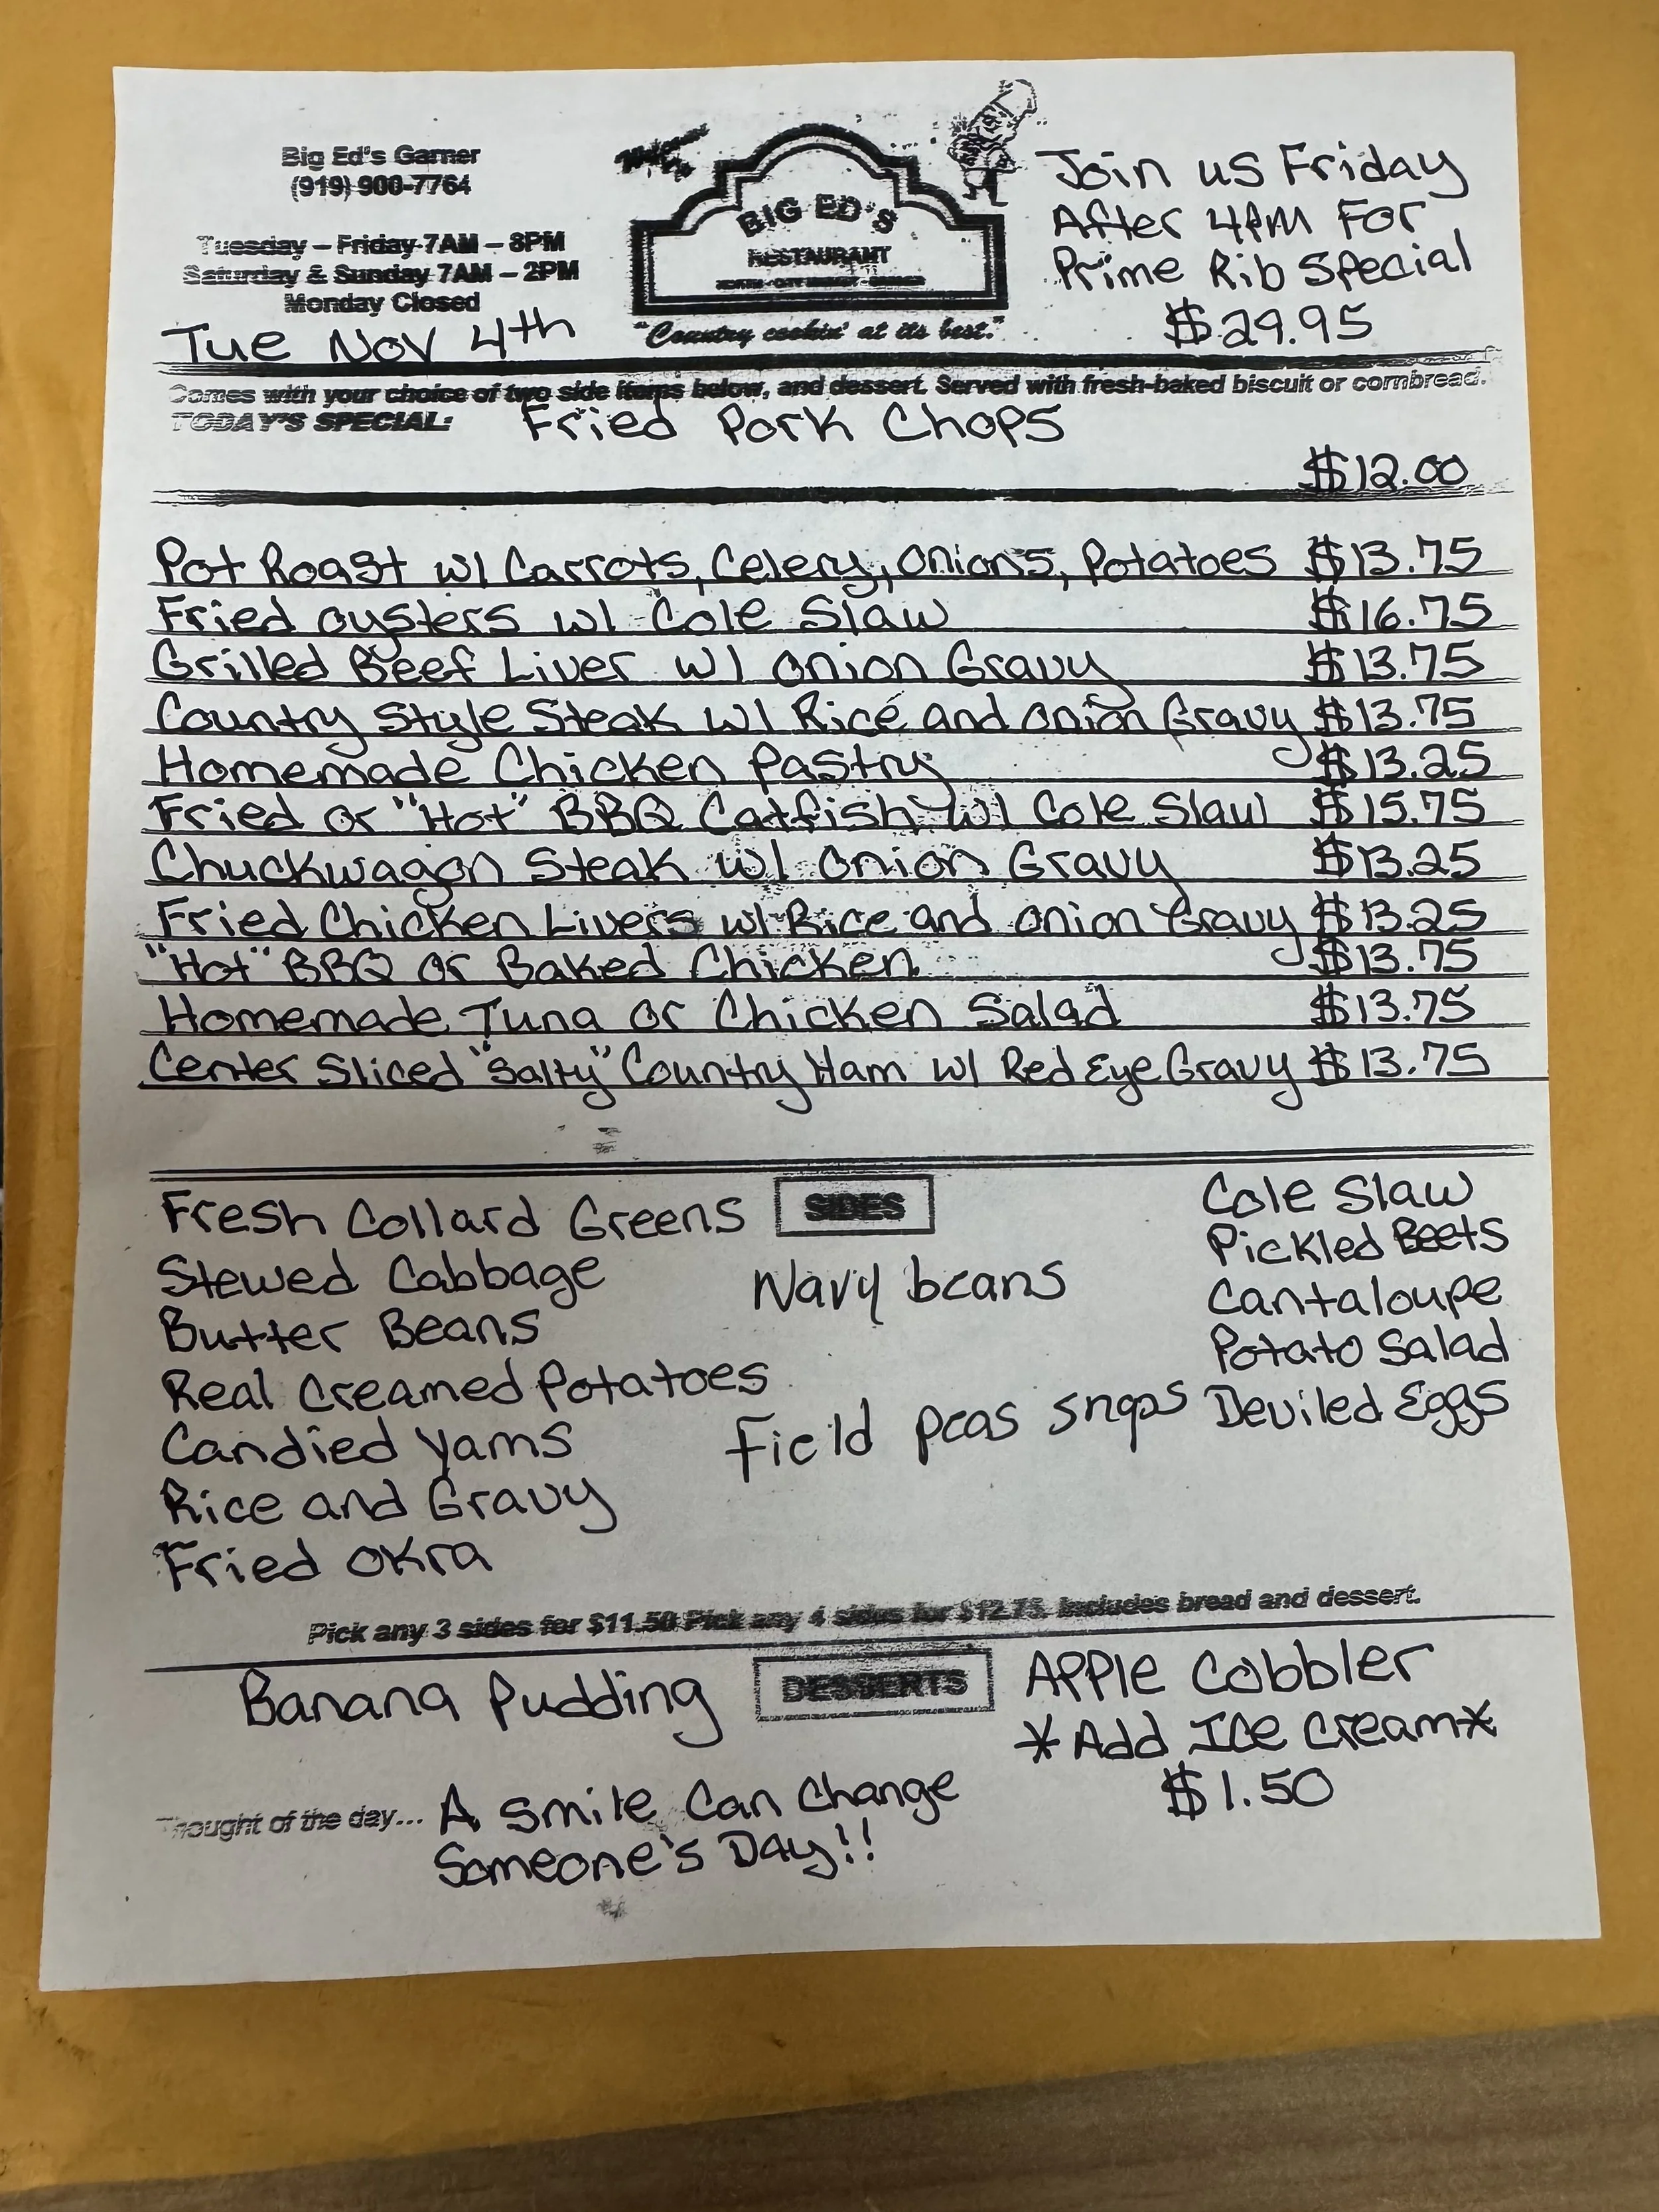 Big Ed's Garner
(919) 900-7764
Tuesday – Friday 7AM – 8PM
Saturday & Sunday 7AM – 2PM
Monday Closed
Tue Nov 4th
Welcome To
BIG ED'S
RESTAURANT
"Country cookin' at its best."
Join us Friday
After 4pm For
Prime Rib Special
$29.95
Comes with your choice of two side items below, and dessert. Served with fresh-baked biscuit or cornbread.
TODAY'S SPECIAL: Fried Pork Chops
$12.00
Pot Roast w/ Carrots, Celery, Onions, Potatoes $13.75
Fried Oysters w/ Cole Slaw $16.75
Grilled Beef Liver w/ Onion Gravy $13.75
Country Style Steak w/ Rice and Onion Gravy $13.75
Homemade Chicken Pastry $13.25
Fried or "Hot" BBQ Catfish w/ Cole Slaw $15.75
Chuckwagon Steak w/ Onion Gravy $13.25
Fried Chicken Livers w/ Rice and Onion Gravy $13.25
"Hot" BBQ or Baked Chicken $13.75
Homemade Tuna or Chicken Salad $13.75
Center Sliced "Salty" Country Ham w/ Red Eye Gravy $13.75
SIDES
Fresh Collard Greens
Stewed Cabbage
Butter Beans
Real Creamed Potatoes
Candied Yams
Rice and Gravy
Fried Okra
Navy beans
Field peas snaps
Cole Slaw
Pickled Beets
Cantaloupe
Potato Salad
Deviled Eggs
Pick any 3 sides for $11.50 Pick any 4 sides for $12.75. Includes bread and dessert.
DESSERTS
Banana Pudding
Apple Cobbler
*Add Ice Cream*
$1.50
Thought of the day... A Smile Can Change
Someone's Day!!